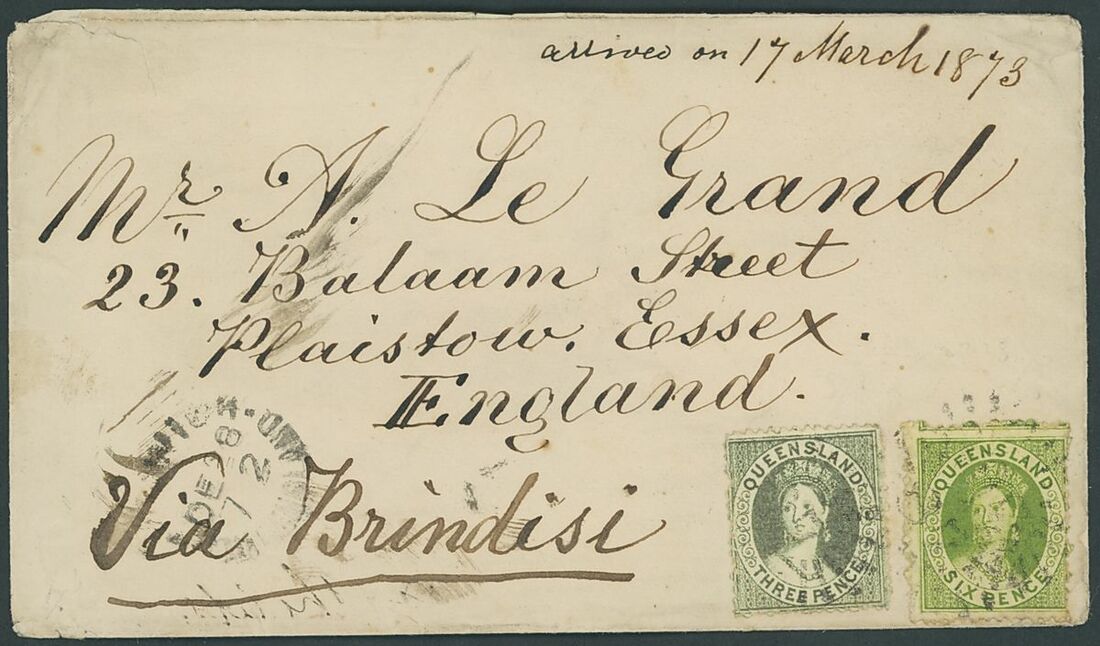 arrived on 17 March 1873
Mr A. Le Grand
23. Balaam Street
Plaistow. Essex.
England.
DE 8
72
Via Brindisi
QUEENSLAND
THREE PENCE
QUEENSLAND
SIX PENCE